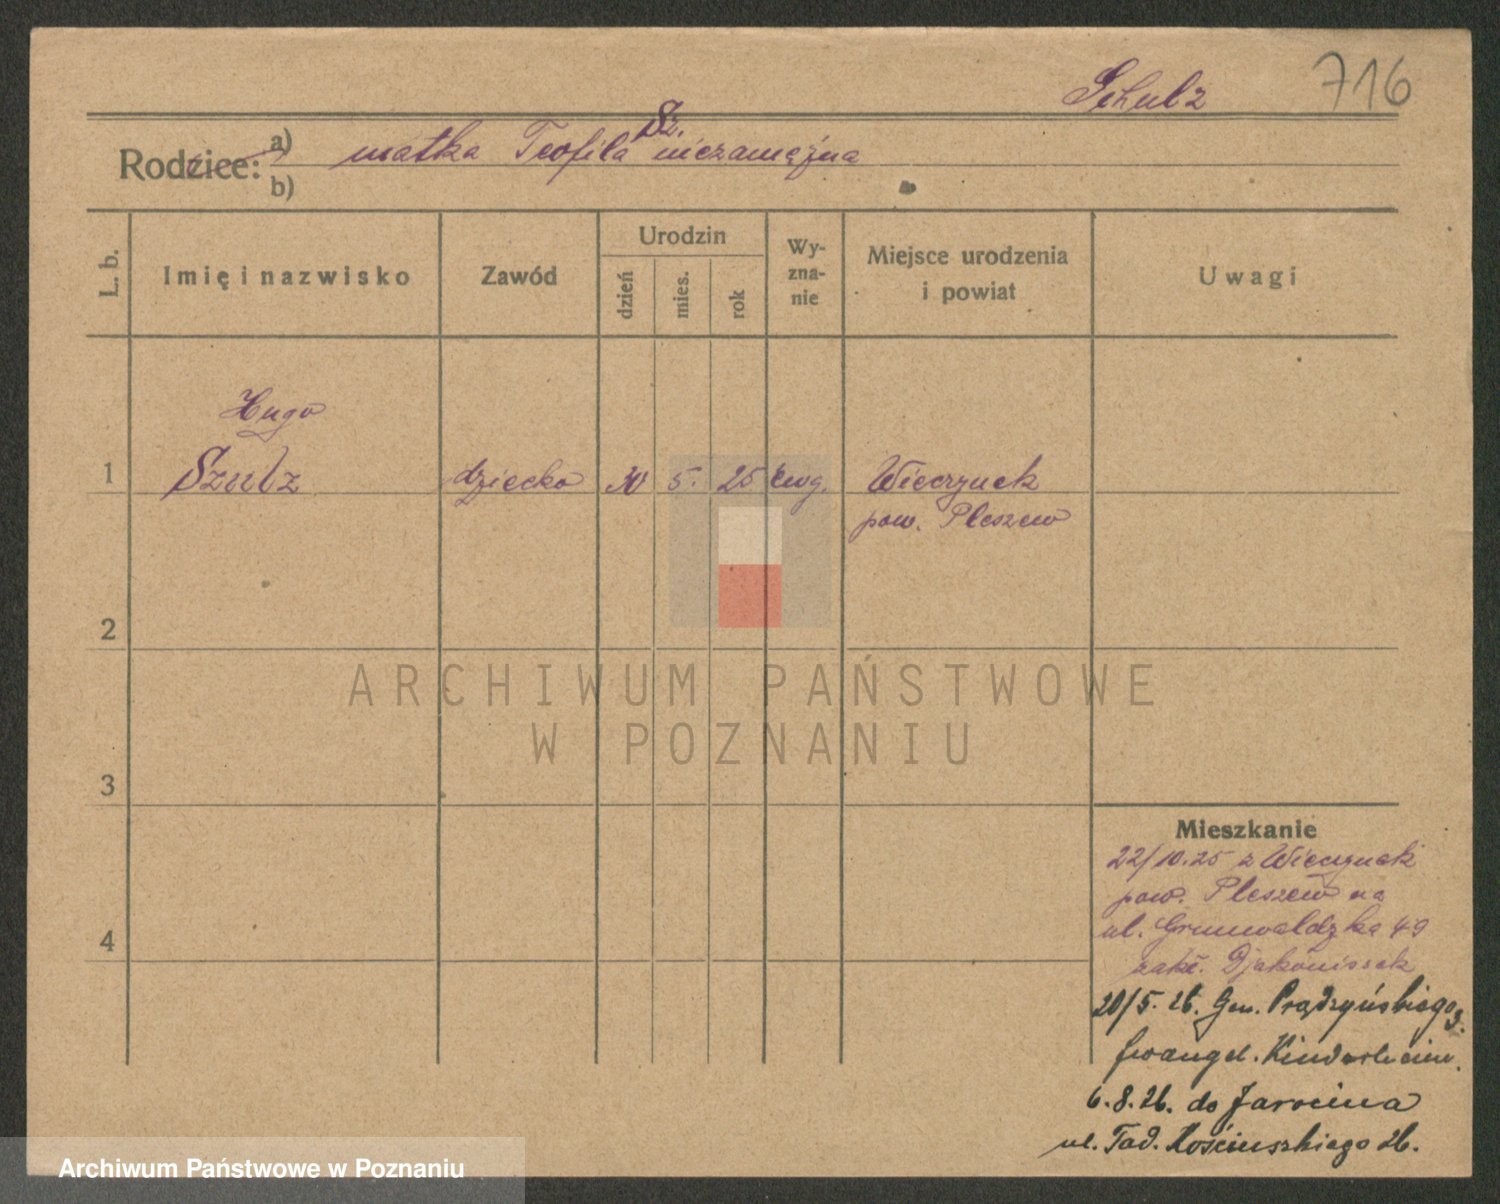 Schulz 716
Rodzice: a) matka Teofila Sz. niezamężna
b)
L. b.
Imię i nazwisko
Zawód
Urodzin
dzień
mies.
rok
Wy-
zna-
nie
Miejsce urodzenia
i powiat
Uwagi
Hugo
1 Szulz dziecko 30 5. 25 ewg. Wieczynek
pow. Pleszew
2
3
4
Mieszkanie
22/10.25 z Wieczynek
pow. Pleszew na
ul. Grunwaldzka 49
zakł. Djakonissek
20/5. 26. Gen. Prądzyńskiego 3.
Ewangel. Kinderheim.
6.8.26. do Jarocina
ul. Tad. Kościuszkiego 26.
ARCHIWUM PAŃSTWOWE
W POZNANIU
Archiwum Państwowe w Poznaniu